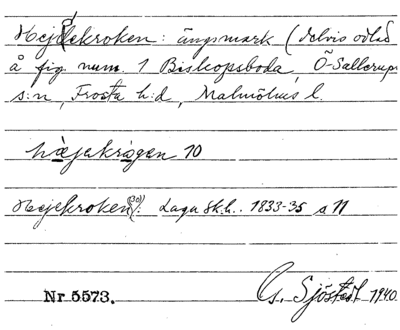 Hejelekroken: ängsmark (delvis odlad
å fig. num. 1 Biskopsboda, Ö-Sallerups
s:n, Frosta h:d, Malmöhus l.
hæjekrogen 70
Hejekroken (30): Laga sk.h. 1833-35 s 11
Nr 5573.
G. Sjöstedt 1940.